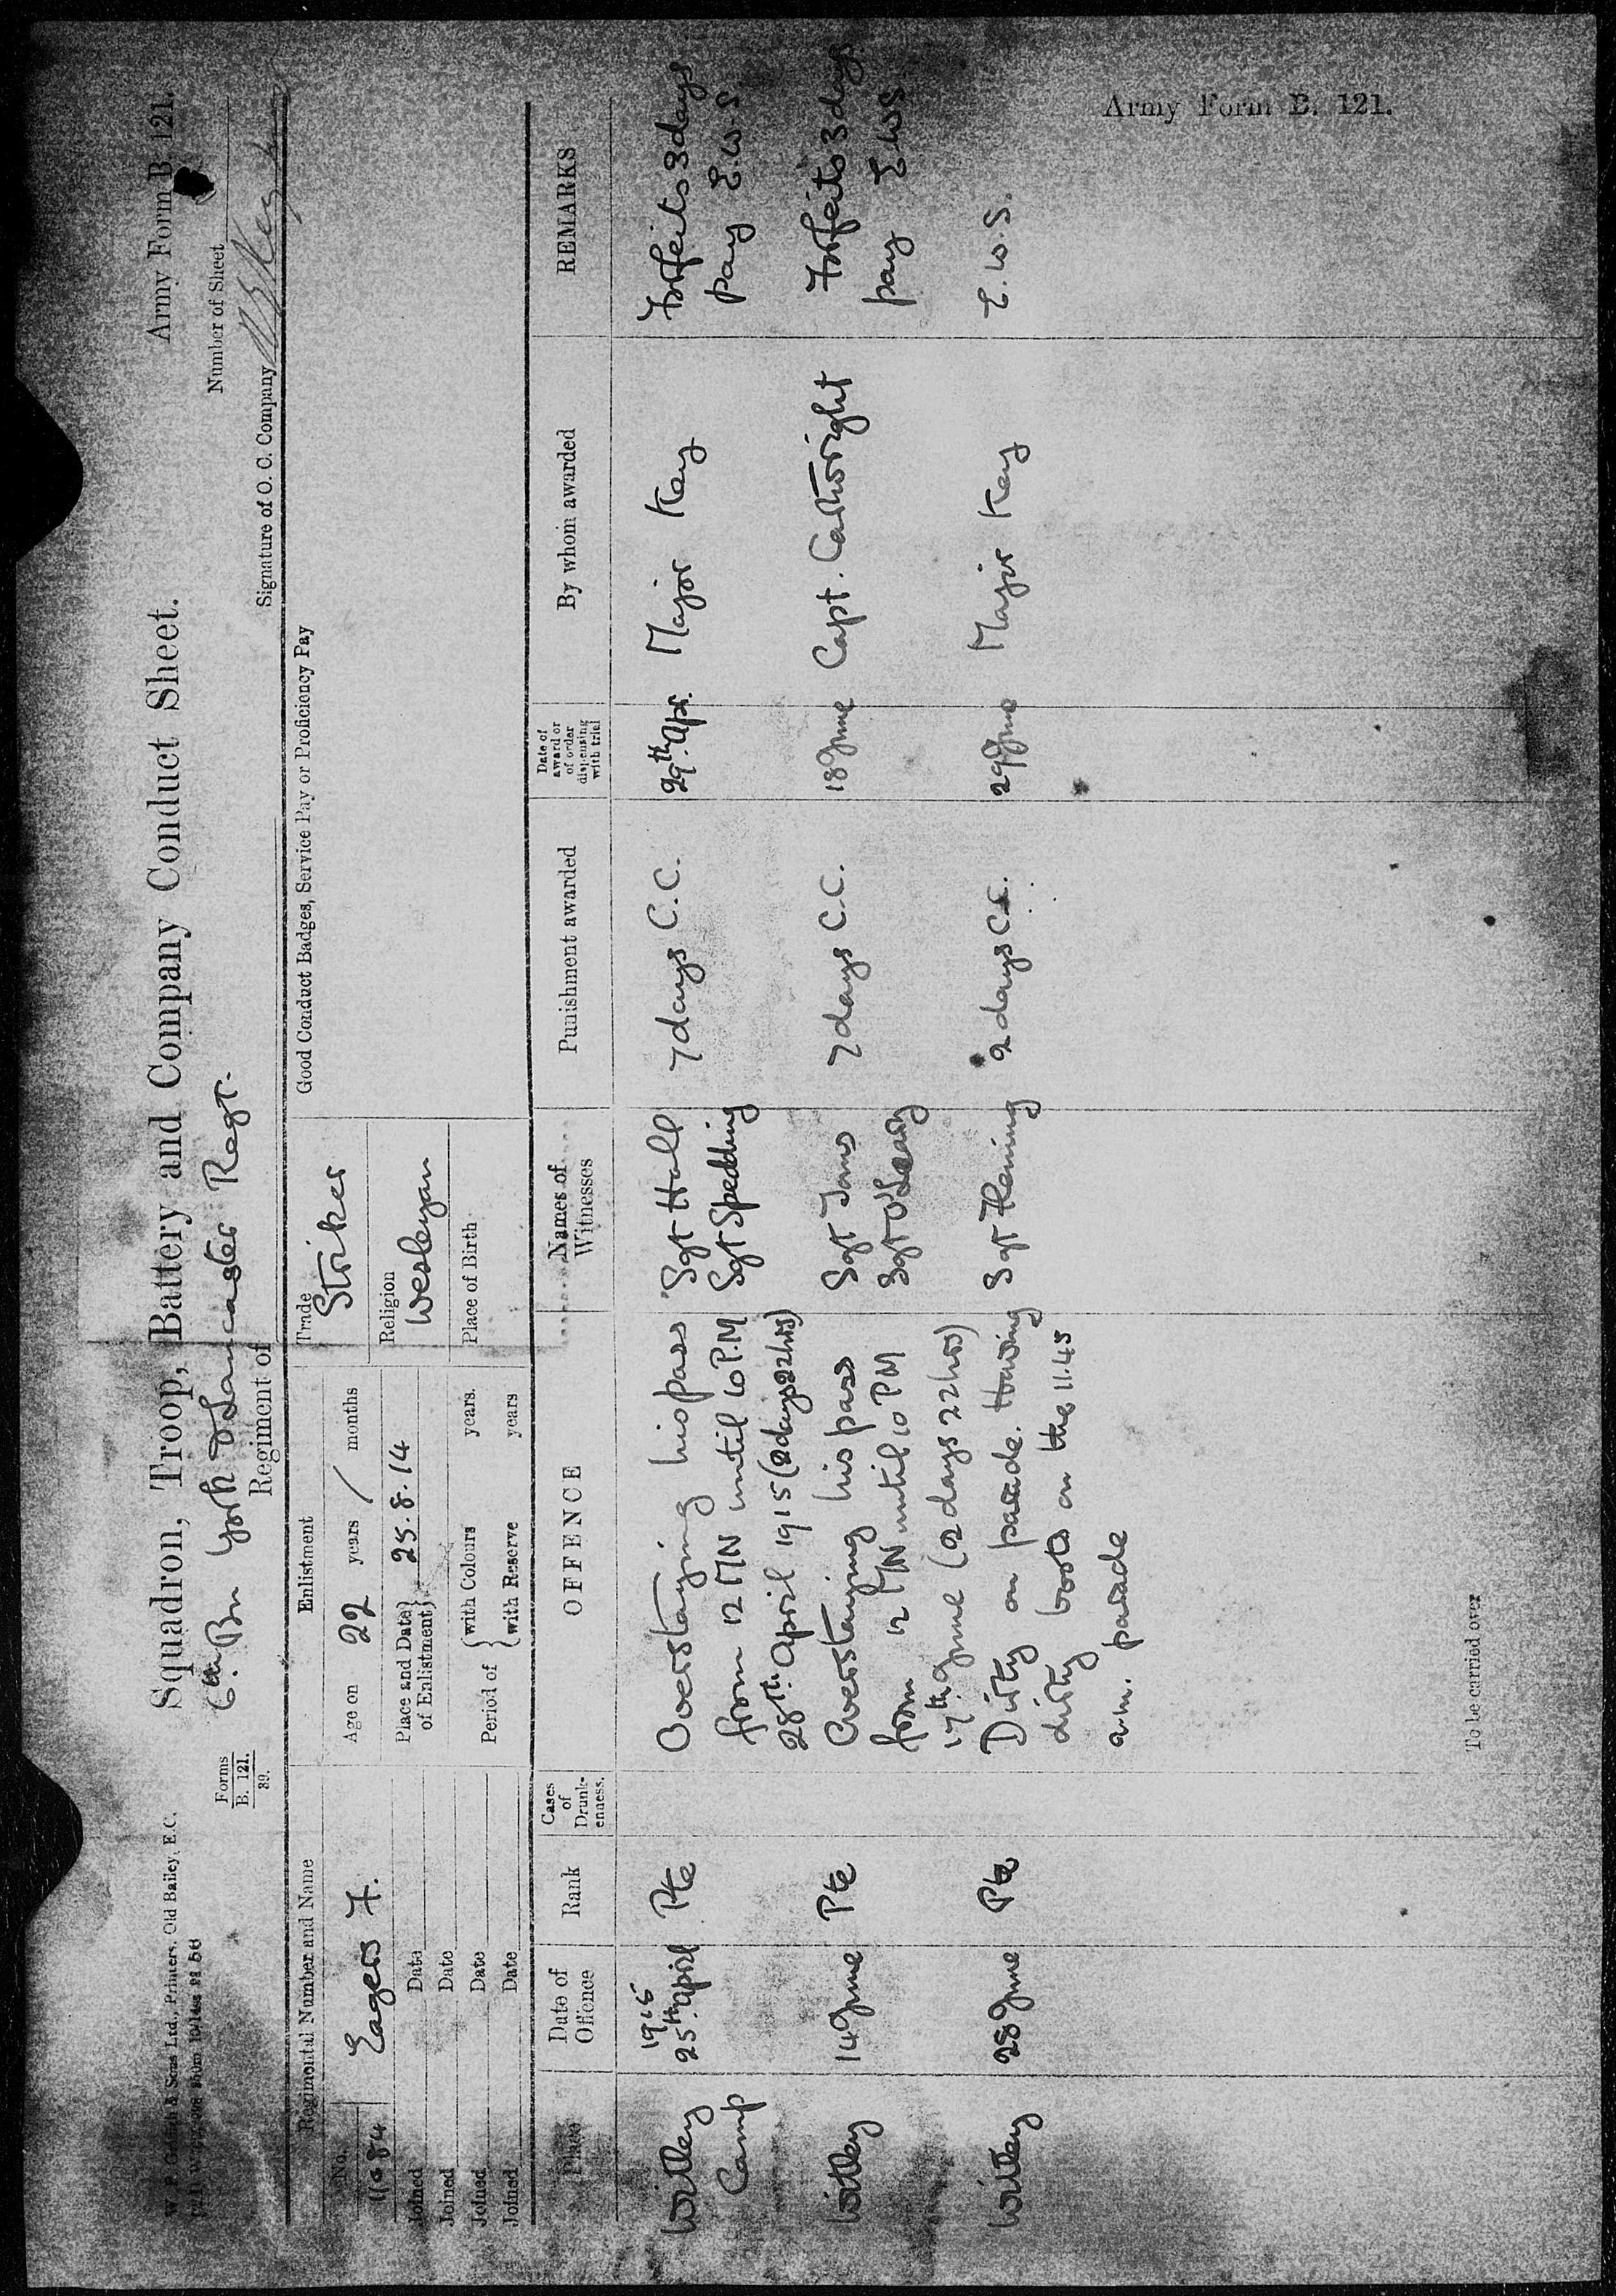 Army Form B. 121.
W. P. Griffith & Sons Ltd., Printers, Old Bailey, E.C.
Forms
B. 121.
39.
Squadron, Troop, Battery and Company Conduct Sheet.
Army Form B. 121.
Number of Sheet
6th Bn York & Lancaster Regt.
Regiment of
Signature of O. C. Company
Regimental Number and Name
No.
11084
Eagers F.
Joined Date
Joined Date
Joined Date
Joined Date
Enlistment
Age on 22 years / months
Place and Date of Enlistment} 25.8.14
Period of {with Colours years.
{with Reserve years
Trade
Striker
Religion
Wesleyan
Place of Birth
Good Conduct Badges, Service Pay or Proficiency Pay
Place
Date of Offence
Rank
Cases of Drunk-enness.
OFFENCE
Names of Witnesses
Punishment awarded
Date of award or of order dispensing with trial
By whom awarded
REMARKS
Witley Camp
1915
25th April
Pte
Overstaying his pass
from 12 MN until 10 P.M
28th April 1915 (2 days 22 hrs)
Sgt Hall
Sgt Spedding
7 days C.C.
29th Apr.
Major Kay
Forfeits 3 days
pay E.W.S.
Witley
14 June
Pte
Overstaying his pass
from 12 MN until 10 PM
17th June (2 days 22 hrs)
Sgt
Sgt O'Leary
7 days C.C.
18 June
Capt. Cartwright
Forfeits 3 days
pay E.W.S
Witley
28 June
Pte
Dirty on parade. Having
dirty boots on the 11.45
a.m. parade
Sgt
2 days C.C.
29 June
Major Kay
E.W.S.
To be carried over
Army Form B. 121.